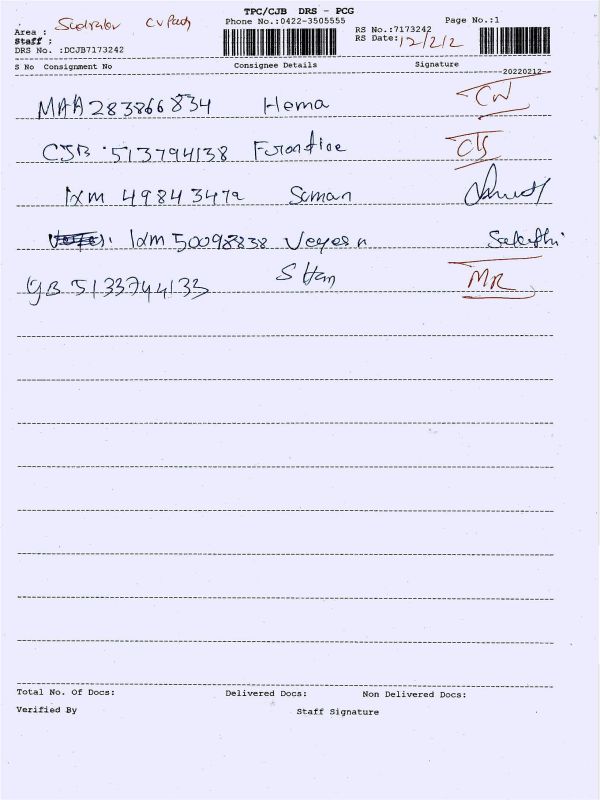 TPC/CJB DRS - PCG
Phone No.:0422-3505555
Page No.:1
Area :
Staff :
DRS No. :DCJB7173242
RS No.:7173242
RS Date: 12/2/2
S No Consignment No Consignee Details Signature
20220212
MAA283866834 Hema
CJB 513794138
IXM 49843479 Suman
IXM 50098838
5133744133 MR
Total No. Of Docs: Delivered Docs: Non Delivered Docs:
Verified By Staff Signature